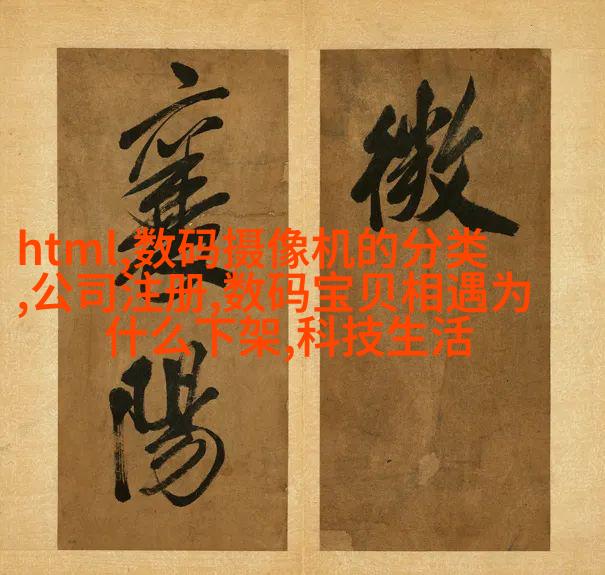 微
襄
陽
html,数码摄像机的分类
,公司注册,数码宝贝相遇为
什么下架,科技生活